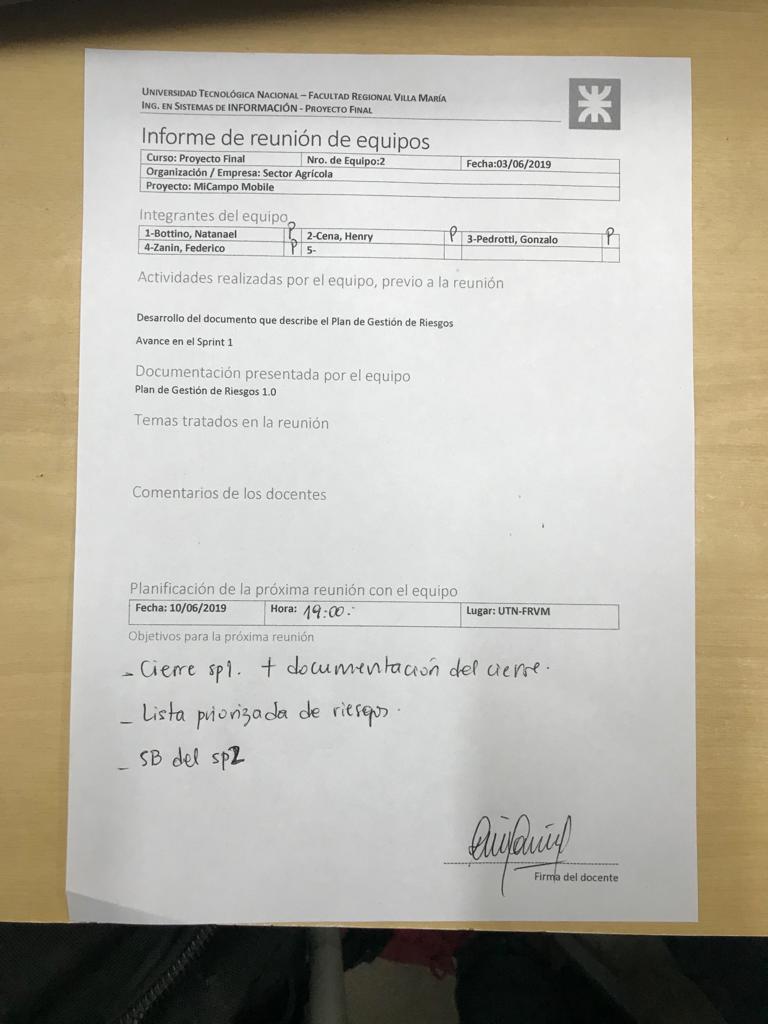 UNIVERSIDAD TECNOLÓGICA NACIONAL – FACULTAD REGIONAL VILLA MARÍA
ING. EN SISTEMAS DE INFORMACIÓN - PROYECTO FINAL
Informe de reunión de equipos
Curso: Proyecto Final Nro. de Equipo:2 Fecha:03/06/2019
Organización / Empresa: Sector Agrícola
Proyecto: MiCampo Mobile
Integrantes del equipo
1-Bottino, Natanael P 2-Cena, Henry P 3-Pedrotti, Gonzalo P
4-Zanin, Federico P 5-
Actividades realizadas por el equipo, previo a la reunión
Desarrollo del documento que describe el Plan de Gestión de Riesgos
Avance en el Sprint 1
Documentación presentada por el equipo
Plan de Gestión de Riesgos 1.0
Temas tratados en la reunión
Comentarios de los docentes
Planificación de la próxima reunión con el equipo
Fecha: 10/06/2019 Hora: 19:00.- Lugar: UTN-FRVM
Objetivos para la próxima reunión
- Cierre sp1. + documentación del cierre.
- Lista priorizada de riesgos.
- SB del sp2
Firma del docente